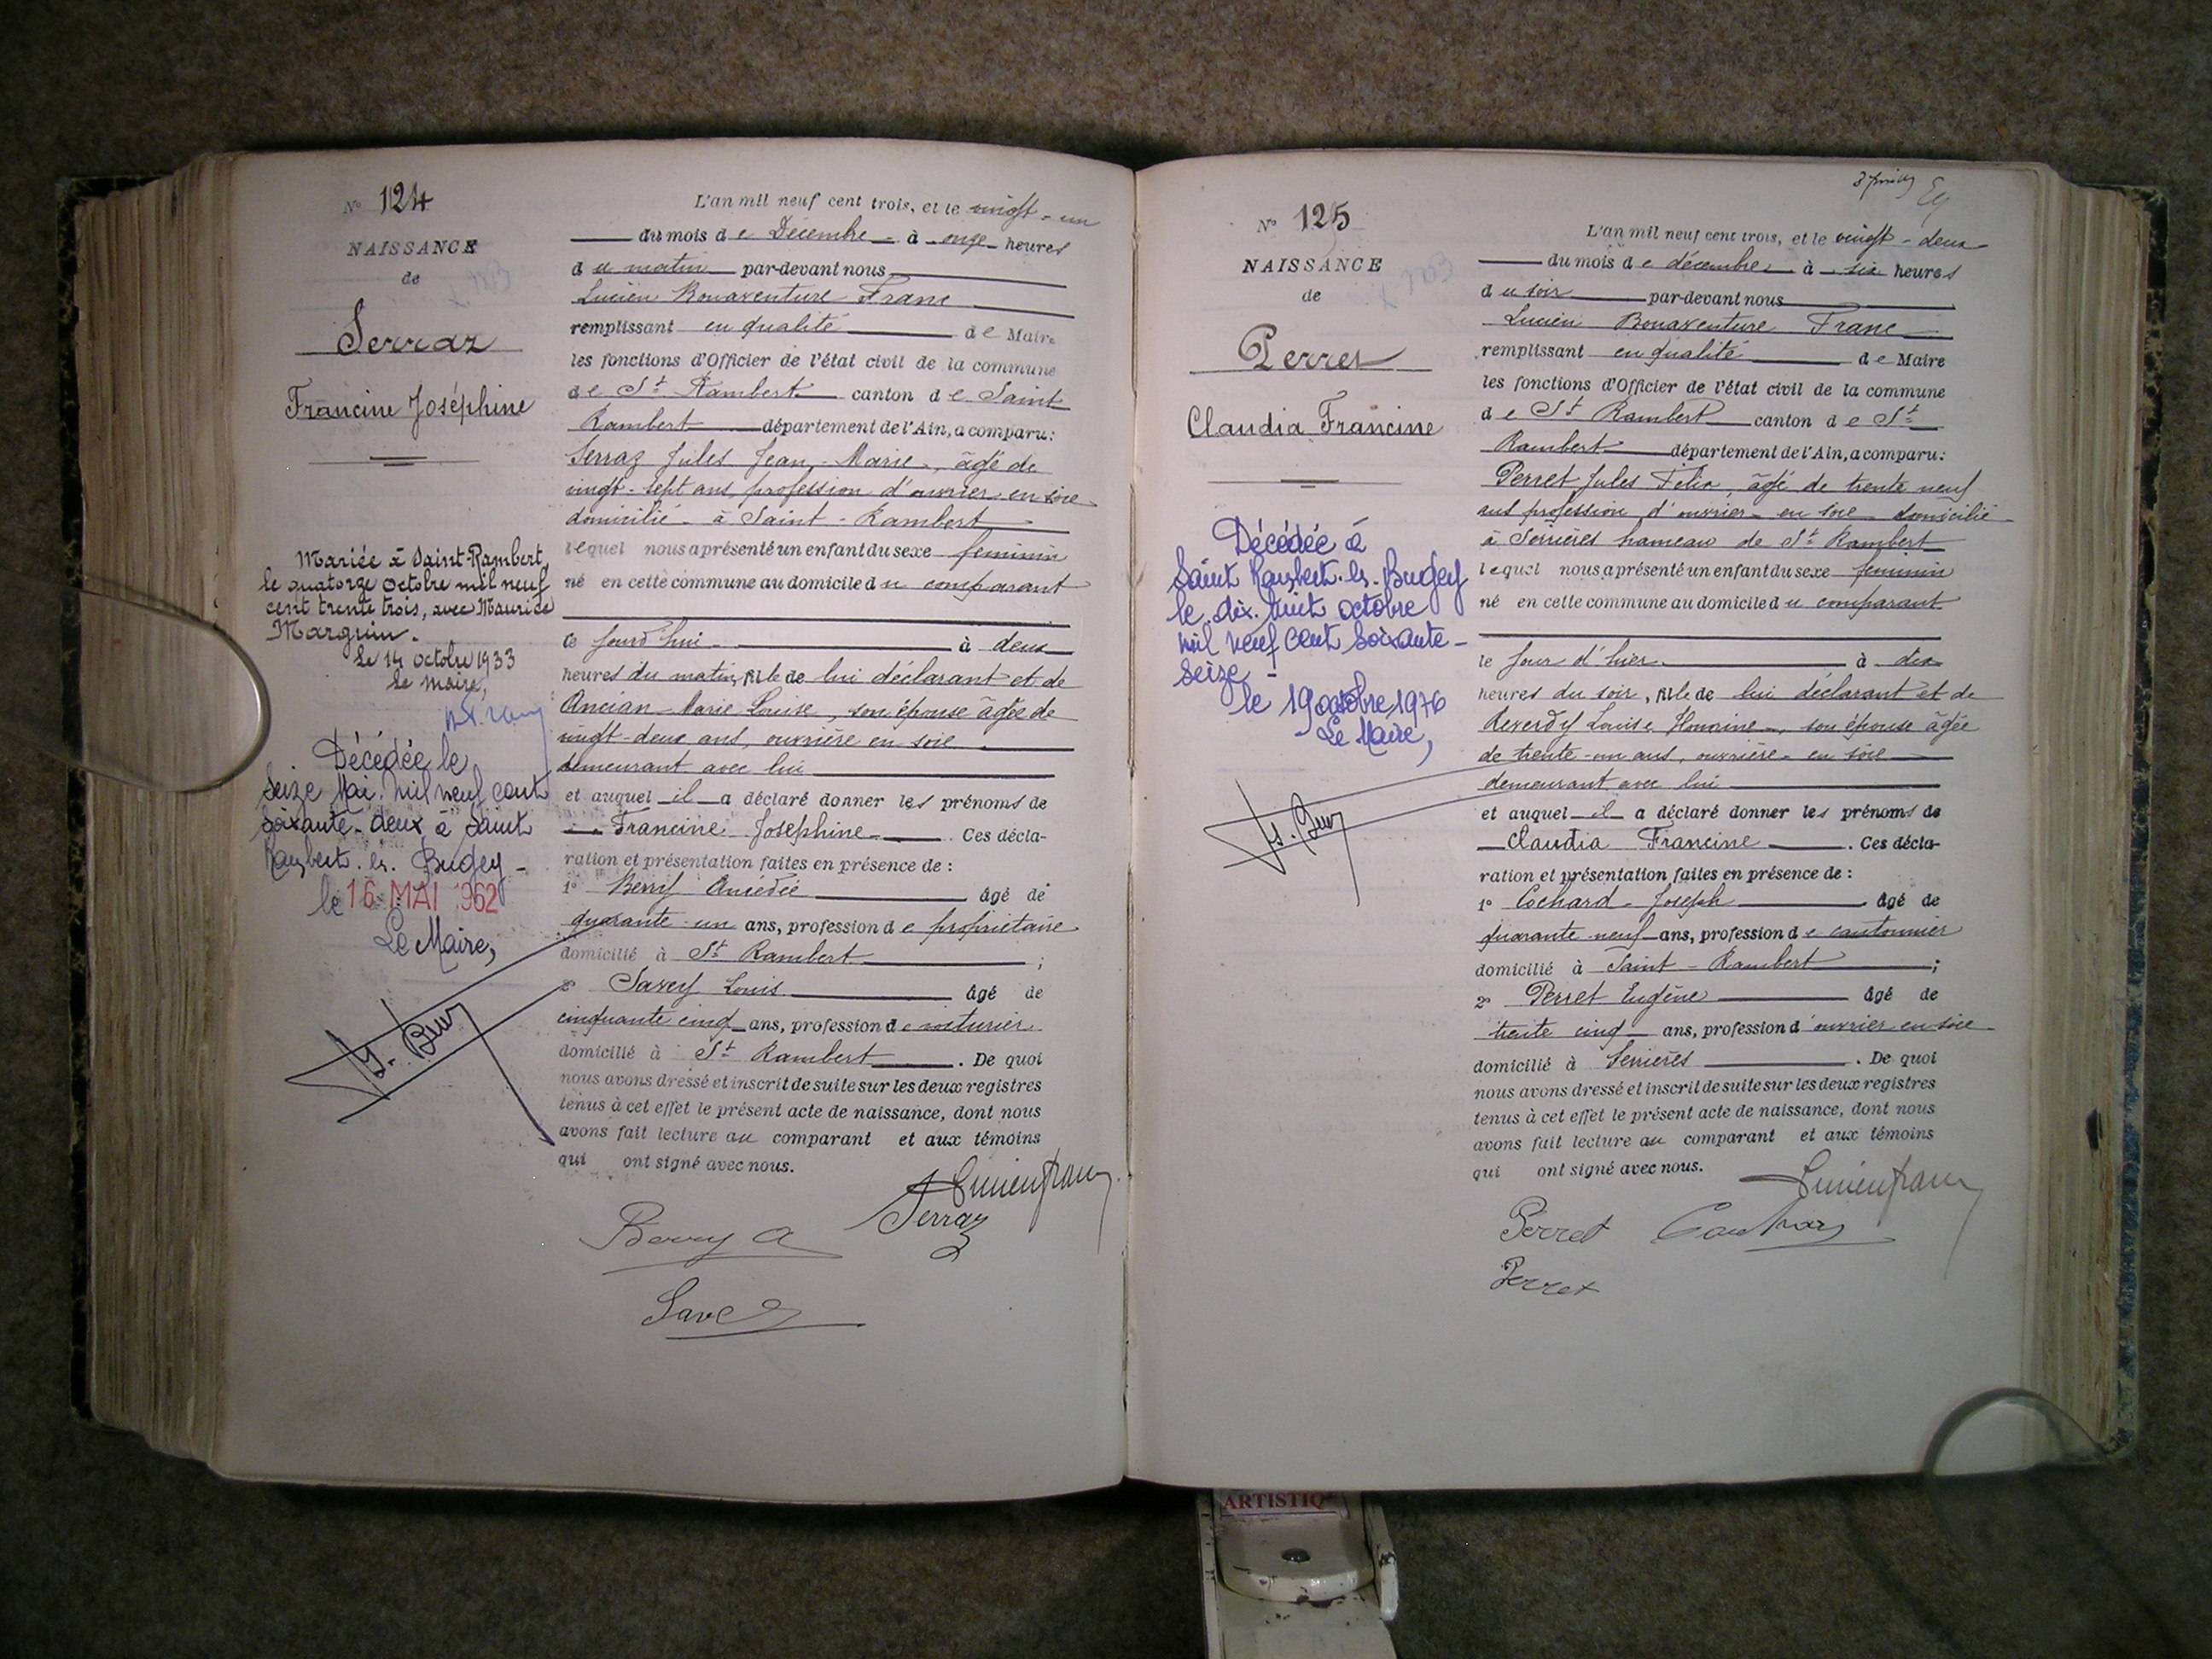 N° 124
NAISSANCE
de
Serraz
Francine Joséphine
Mariée à Saint-Rambert,
le quatorze octobre mil neuf
cent trente trois, avec Maurice
Marguin.
Le 14 octobre 1933
Le Maire,
Décédée le
seize Mai mil neuf cent
soixante-deux à Saint
Rambert-en-Bugey-
le 16 MAI 1962
Le Maire,
L'an mil neuf cent trois, et le vingt-un
du mois de Décembre à onze heures
du matin par-devant nous
Lucien Bonaventure Franc
remplissant en qualité de Maire
les fonctions d'Officier de l'état civil de la commune
de St Rambert canton de Saint
Rambert département de l'Ain, a comparu:
Serraz Jules Jean-Marie, âgé de
vingt-sept ans, profession d'ouvrier en soie
domicilié à Saint-Rambert
lequel nous a présenté un enfant du sexe feminin
né en cette commune au domicile du comparant
ce jourd'hui à deux
heures du matin, fille de lui déclarant et de
Ancian Marie Louise, son épouse âgée de
vingt-deux ans, ouvrière en soie
demeurant avec lui
et auquel il a déclaré donner les prénoms de
Francine Josephine. Ces décla-
ration et présentation faites en présence de :
1° Berry Amédée âgé de
quarante-un ans, profession de propriétaire
domicilié à St Rambert ;
2° Savey Louis âgé de
cinquante cinq ans, profession de voiturier
domicilié à St Rambert. De quoi
nous avons dressé et inscrit de suite sur les deux registres
tenus à cet effet le présent acte de naissance, dont nous
avons fait lecture au comparant et aux témoins
qui ont signé avec nous.
Lucien franc
Serraz
Berry A
Savey
N° 125
NAISSANCE
de
Perret
Claudia Francine
Décédée à
Saint Rambert-en-Bugey
le dix-huit octobre
mil neuf cent soixante-
seize-
le 19 octobre 1976
Le Maire,
L'an mil neuf cent trois, et le vingt-deux
du mois de décembre à six heures
du soir par-devant nous
Lucien Bonaventure Franc
remplissant en qualité de Maire
les fonctions d'Officier de l'état civil de la commune
de St Rambert canton de St
Rambert département de l'Ain, a comparu:
Perret Jules Félix, âgé de trente neuf
ans profession d'ouvrier en soie domicilié
à Serrières hameau de St Rambert
lequel nous a présenté un enfant du sexe feminin
né en cette commune au domicile du comparant
le jour d'hier à dix
heures du soir, fille de lui déclarant et de
Reverdy Louise, son épouse âgée
de trente-un ans, ouvrière en soie
demeurant avec lui
et auquel il a déclaré donner les prénoms de
Claudia Francine. Ces décla-
ration et présentation faites en présence de :
1° Cochard Joseph âgé de
quarante neuf ans, profession de cantonnier
domicilié à Saint-Rambert ;
2° Perret Eugène âgé de
trente cinq ans, profession d'ouvrier en soie
domicilié à Serrières. De quoi
nous avons dressé et inscrit de suite sur les deux registres
tenus à cet effet le présent acte de naissance, dont nous
avons fait lecture au comparant et aux témoins
qui ont signé avec nous.
Lucien franc
Perret
Perret
ARTISTIQ